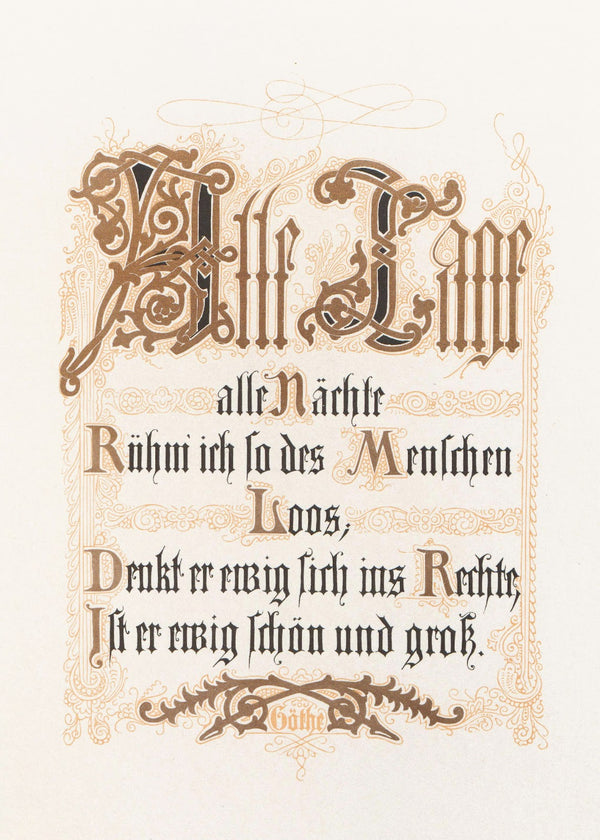 Alle Tage
alle Nächte
Rühm' ich so des Menschen
Loos;
Denkt er ewig sich ins Rechte,
Ist er ewig schön und groß.
Göthe